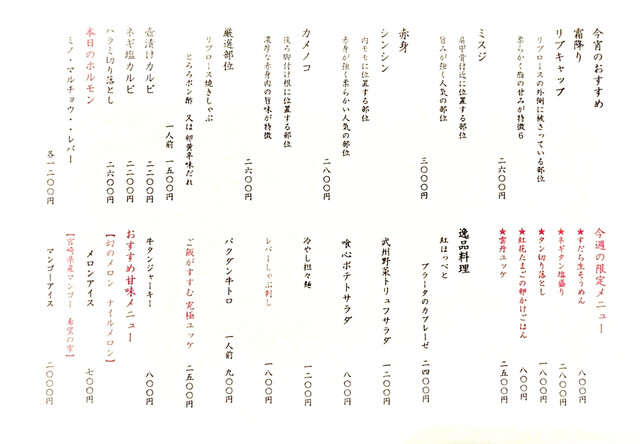 今宵のおすすめ
霜降り
リブキャップ
リブロースの外側に被さっている部位
柔らかく脂の甘みが特徴6
二六〇〇円
ミスジ
肩甲骨付近に位置する部位
旨みが強く人気の部位
三〇〇〇円
赤身
シンシン
内モモに位置する部位
赤身が強く柔らかい人気の部位
二八〇〇円
カメノコ
後ろ脚付け根に位置する部位
濃厚な赤身肉の旨味が特徴
二六〇〇円
厳選部位
リブロース焼きしゃぶ
とろろポン酢 又は 卵黄辛味だれ
一人前 一五〇〇円
壺漬けカルビ 二二〇〇円
ネギ塩カルビ 二二〇〇円
ハラミ切り落とし 二六〇〇円
本日のホルモン
ミノ・マルチョウ・・レバー
各一二〇〇円
今週の限定メニュー
★すだち生そうめん 八〇〇円
★ネギタン塩盛り 二八〇〇円
★タン切り落とし 一八〇〇円
★紅花たまごの卵かけごはん 八〇〇円
★雲丹ユッケ 二五〇〇円
逸品料理
紅ほっぺと
ブラータのカプレーゼ 二四〇〇円
武州野菜トリュフサラダ 一二〇〇円
喰心ポテトサラダ 八〇〇円
冷やし担々麺 一二〇〇円
レバーしゃぶ刺し 一八〇〇円
バクダン牛トロ 一人前 九〇〇円
ご飯がすすむ 究極ユッケ 二五〇〇円
牛タンジャーキー 八〇〇円
おすすめ甘味メニュー
【幻のメロン ナイルメロン】
メロンアイス 七〇〇円
【宮崎県産マンゴー 希望の雫】
マンゴーアイス 二〇〇〇円